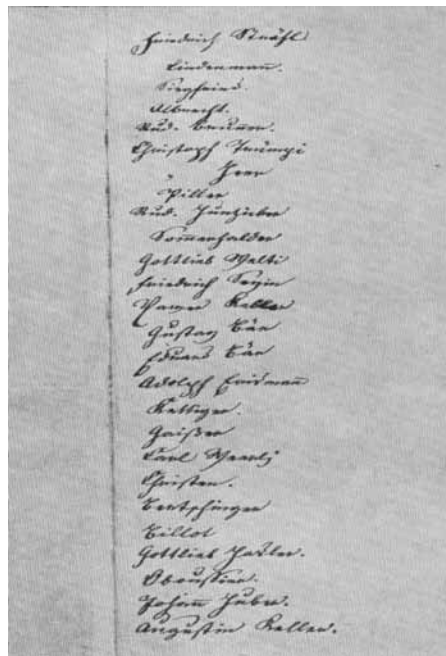 Friedrich Strähl
Lindenmann.
Siegfried.
Albrecht.
Rud. Brunner.
Christoph Trümpi
Herr
Rud. Hunziker
Sommerhalder
Gottlieb Welti
Friedrich
Keller
Gustav Bär
Eduard Bär
Adolph Erismann
Kettiger.
Gaißer
Carl
Christen.
Bertschinger
Billot
Gottlieb Haßler.
Oboussier.
Johann Huber.
Augustin Keller.